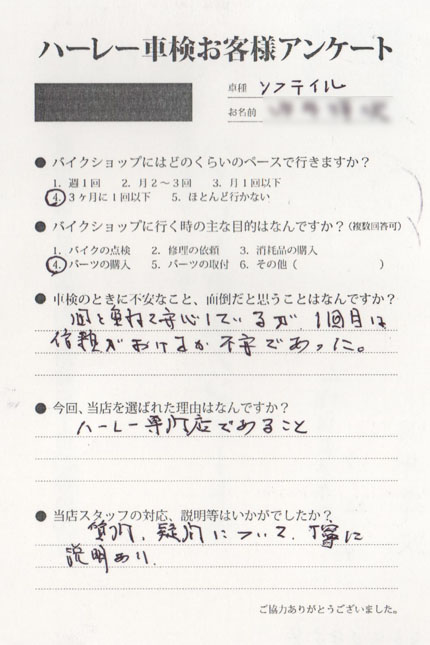 ハーレー車検お客様アンケート
車種 ソフテイル
お名前
● バイクショップにはどのくらいのペースで行きますか？
1. 週1回 2. 月2～3回 3. 月1回以下
4. 3ヶ月に1回以下 5. ほとんど行かない
● バイクショップに行く時の主な目的はなんですか？(複数回答可)
1. バイクの点検 2. 修理の依頼 3. 消耗品の購入
4. パーツの購入 5. パーツの取付 6. その他（ ）
● 車検のときに不安なこと、面倒だと思うことはなんですか？
回を重ねて安心しているが、1回目は
信頼がおけるか不安であった。
● 今回、当店を選ばれた理由はなんですか？
ハーレー専門店であること
● 当店スタッフの対応、説明等はいかがでしたか？
質問、疑問について、丁寧に
説明あり.
ご協力ありがとうございました。